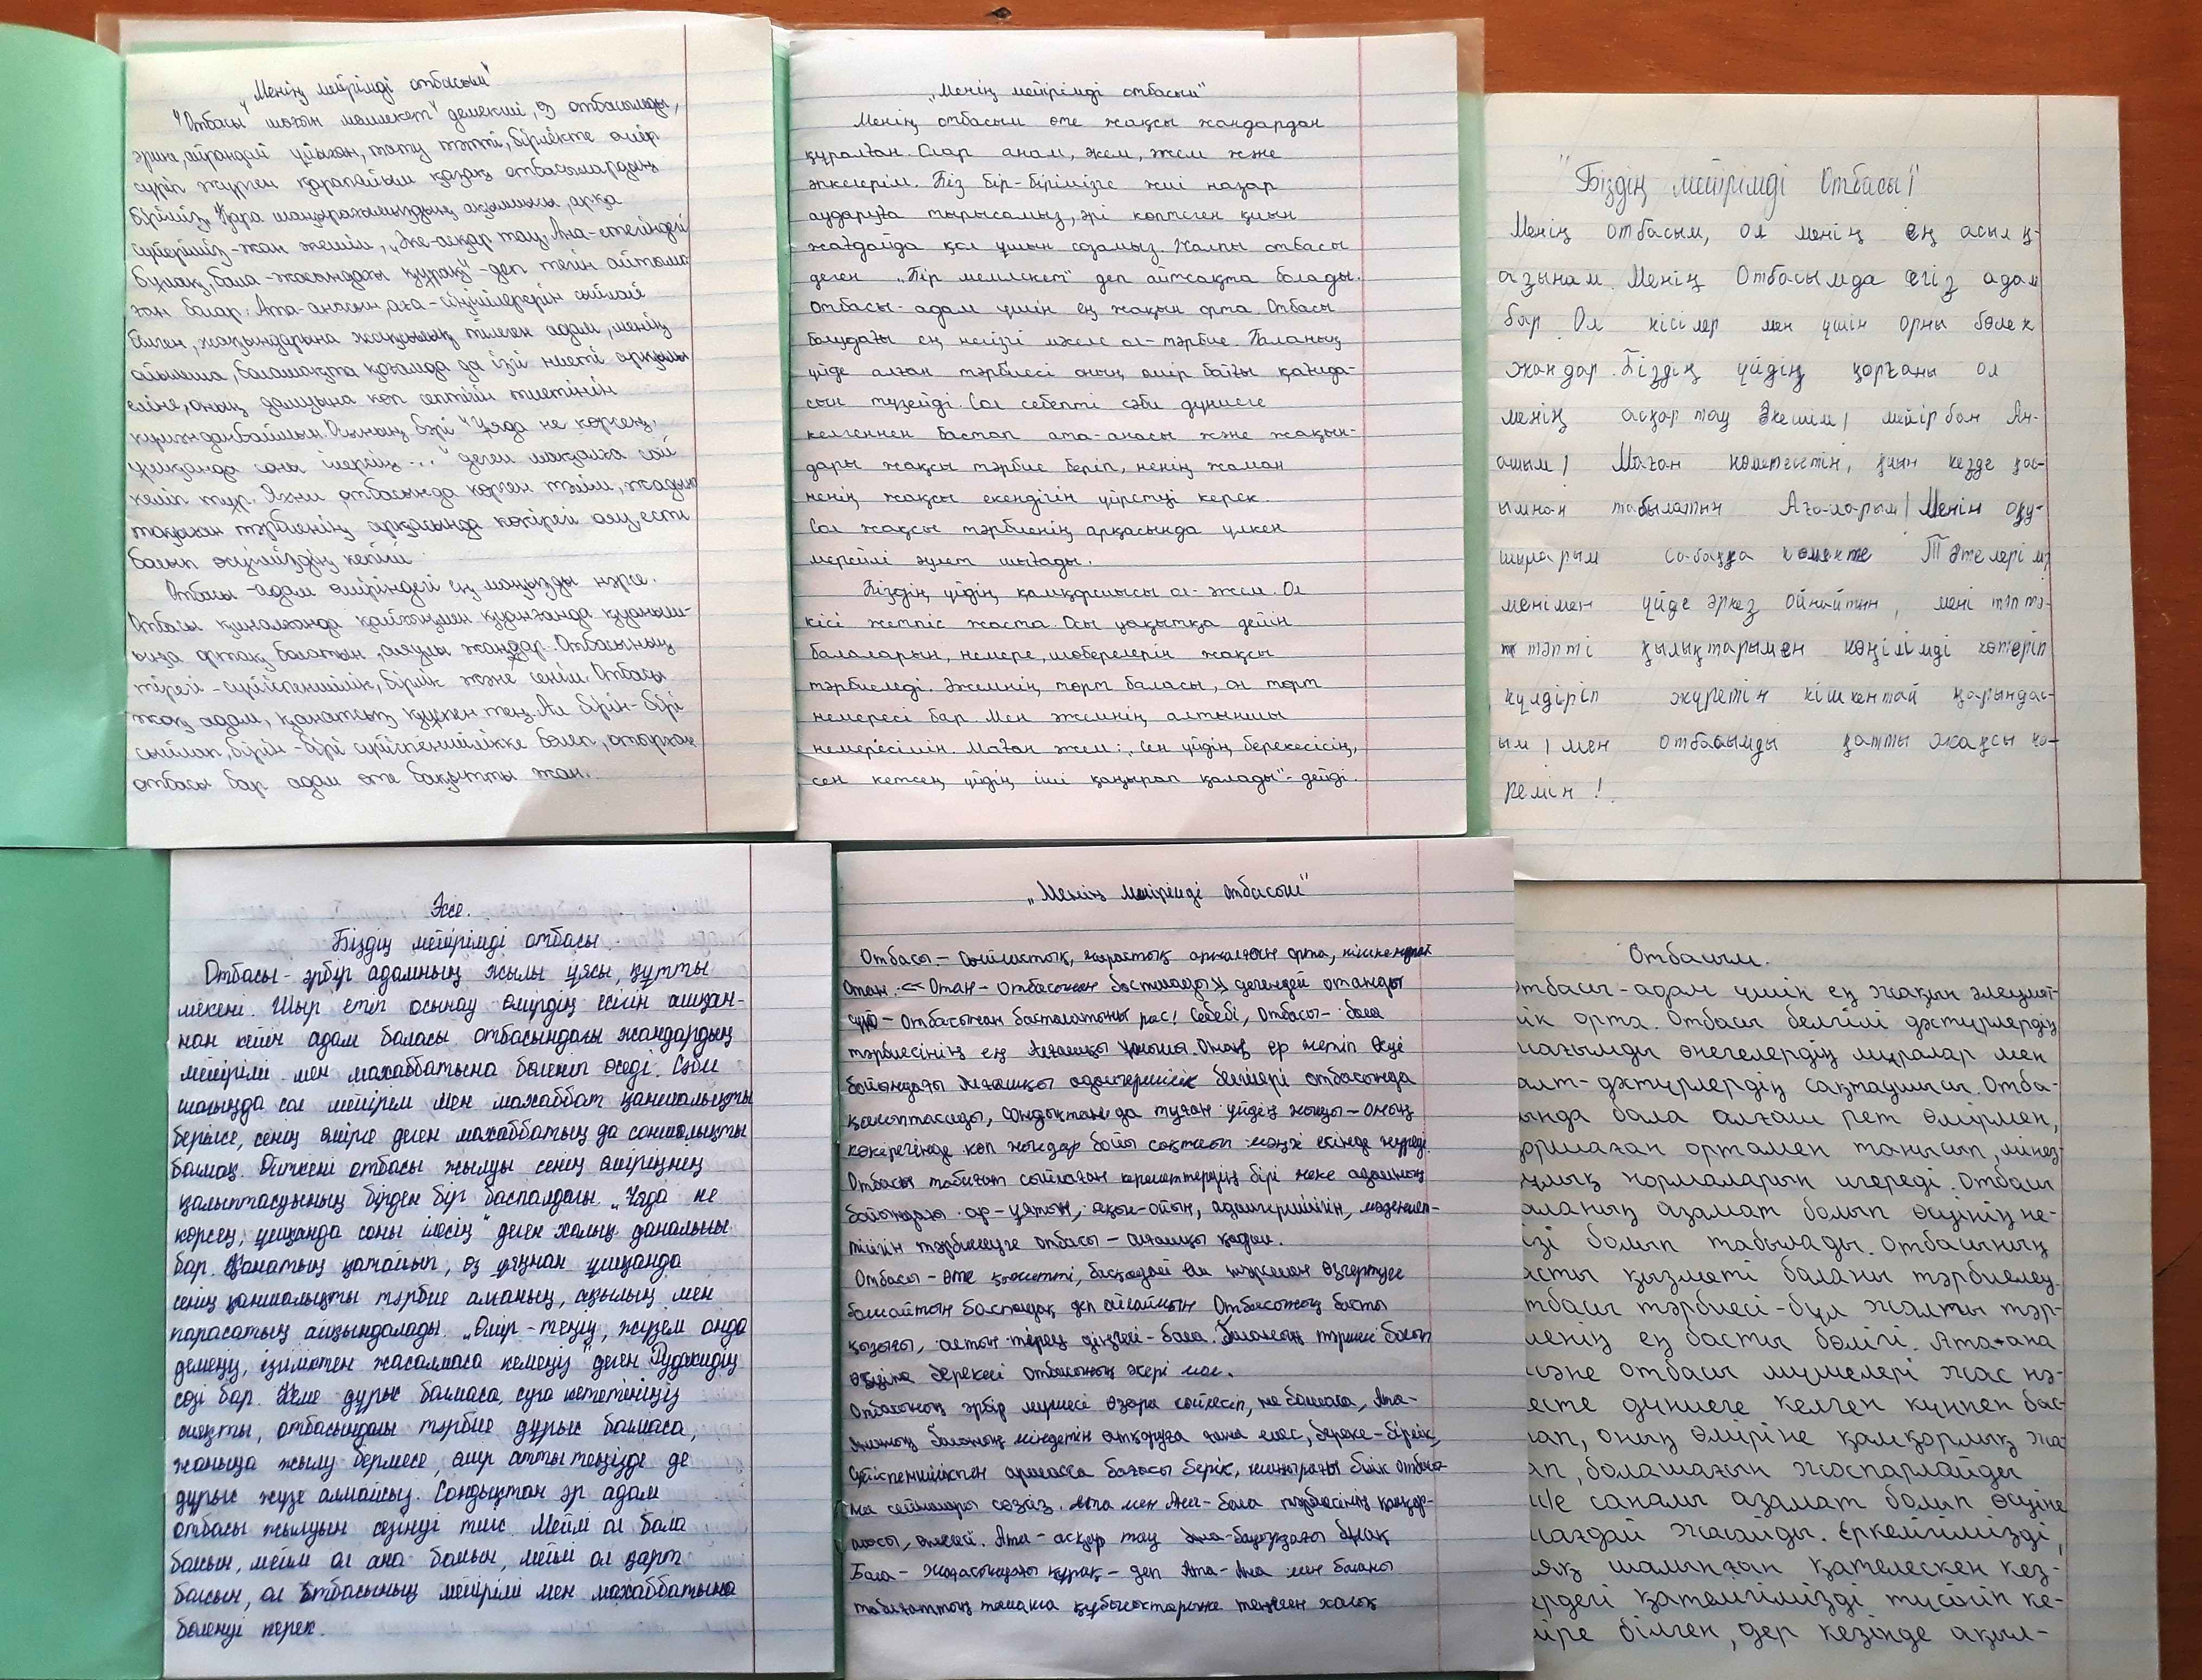 "Менің мейірімді отбасым"
"Отбасы" шағын мемлекет" демекші, отбасымды,
әрине, айрандай ұйыған, тату тәтті, бірлікте өмір
сүріп жүрген қарапайым қазақ отбасылардың
біріміз. Қара шаңырағымыздың ақылшысы, арқа
сүйеріміз - жан әкешім, "Әке-асқар тау, Ана-етегіндегі
бұлақ, бала-жасындағы құрақ" - деп тегін айтылма-
ған болар. Ата-анасын, аға-сіңілілерін сыйлай
білген, жақындарына жақсылық тілеген адам, менің
ойымша, болашақта қоғамда да ізгі ниеті арқылы
еліне, оның дамуына көп септігін тигізетінін
күмәнданбаймын. Осының бәрі "Ұяда не көрсең,
ұшқанда соны ілерсің..." деген мақалға сай
келіп тұр. Яғни, отбасында көрген тәлім, жадына
тоқыған тәрбиенің арқасында көкірегі ояу, есті
болып өсуіміздің кепілі.
Отбасы - адам өміріндегі ең маңызды нәрсе.
Отбасы қиналғанда қайғыңмен қуанғанда қуаныш-
ыңа ортақ болатын, аяулы жандар. Отбасының
тірегі - сүйіспеншілік, бірлік және сенім. Отбасы
жоқ адам, қанатсыз құспен тең. Ал бірін-бірі
сыйлап, бірін-бірі сүйіспеншілікке бөлеп, отырған
отбасы бар адам өте бақытты жан.
"Менің мейірімді отбасым"
Менің отбасым өте жақсы жандардан
құралған. Олар анам, әкем, әжем және
әпкелерім. Біз бір-бірімізге жиі назар
аударуға тырысамыз, әрі көптеген қиын
жағдайда қол ұшын созамыз. Жалпы отбасы
деген "Бір мемлекет" деп айтсақта болады.
Отбасы - адам үшін ең жақын орта. Отбасы
болудағы ең негізгі мәселе ол - тәрбие. Баланың
үйде алған тәрбиесі оның өмір бойғы қағида-
сын түзейді. Сол себепті сәби дүниеге
келгеннен бастап ата-анасы және жақын-
дары жақсы тәрбие беріп, ненің жаман
ненің жақсы екендігін үйретуі керек.
Сол жақсы тәрбиенің арқасында үлкен
мерейлі әулет шығады.
Біздің үйдің қамқоршысы ол - әжем. Ол
кісі жетпіс жаста. Осы уақытқа дейін
балаларын, немере, шөберелерін жақсы
тәрбиеледі. Әжемнің төрт баласы, он төрт
немересі бар. Мен әжемнің алтыншы
немересімін. Маған әжем: "Сен үйдің берекесісің,
сен кетсең үйдің іші қаңырап қалады" - дейді.
"Біздің мейірімді Отбасы!"
Менің отбасым, ол менің ең асыл қ-
азынам. Менің Отбасымда егіз адам
бар. Ол кісілер мен үшін орны бөлек
жандар. Біздің үйдің қорғаны ол
менің асқар тау Әкешім! мейірбан Ан-
ашым! Маған көмектесетін, қиын кезде қас-
ымнан табылатын Аға-ларым! Менін оқу-
шыларым сабаққа көмекте Тәтелерім,
менімен үйде әркез ойнайтын, мені тәптә-
тәпті қылықтарымен көңілімді көтеріп
күлдіріп жүретін кішкентай қарындас-
ым! мен отбасымды қатты жақсы кө-
ремін!
Эссе.
Біздің мейірімді отбасы.
Отбасы - әрбір адамның жылы ұясы, құтты
мекені. Шыр етіп осынау өмірдің есігін ашқан-
нан кейін адам баласы отбасындағы жандардың
мейірімі мен махаббатына бөленіп өседі. Сәби
шағыңда сол мейірем мен махаббат қаншалықты
берілсе, сенің өмірге деген махаббатың да соншалықты
болмақ. Өйткені отбасы жылуы сенің өміріңнің
қалыптасуының бірден бір баспалдағы. "Ұяда не
көрсең, ұшқанда соны ілесің" деген халық даналығы
бар. Қанатың қатайып, өз ұяңнан ұшқанда
сенің қаншалықты тәрбие алғаның, ақылың мен
парасатың айқындалады. "Өмір - теңіз, жүзем онда
демеңіз, ізгіліктен жасалмаса кемеңіз" деген Рудакидің
сөзі бар. Кеме дұрыс болмаса, суға кететініңіз
сияқты, отбасындағы тәрбие дұрыс болмаса,
жаныңа жылу бермесе, өмір атты теңізде де
дұрыс жүзе алмайсың. Сондықтан әр адам
отбасы жылуын сезінуі тиіс. Мейлі ол бала
болсын, мейлі ол ана болсын, мейлі ол қарт
болсын, ол отбасының мейірімі мен махаббатына
бөленуі керек.
"Менің мейірімді отбасым"
Отбасы - сыйластық, жарастық орнаған орта, кішкентай
Отан. «Отан - отбасынан басталады» дегендей отанды
сүю - отбасынан басталатыны рас! Себебі, отбасы - бала
тәрбиесінің ең алғашқы ұясы. Оның ер жетіп өсуі
бойындағы алғашқы адамгершілік белгілері отбасында
қалыптасады, сондықтан да туған үйдің жылуы - оның
көкірегінде көп жылдар бойы сақталып мәңгі есінде жүреді.
Отбасы табиғат сыйлаған кереметтердің бірі және адамның
бойындағы ар-ұятын, ақыл-ойын, адамгершілігін, мәдениет-
тілігін тәрбиелеуге отбасы - алғашқы қадам.
Отбасы - өте қажетті, басқадай еш нәрсемен өзгертуге
болмайтын баспалдақ деп ойлаймын. Отбасының басты
қызығы, алтын тірегі діңгегі - бала. Баланың тәрбиелі болып
өсуіне берекелі отбасының әсері мол.
Отбасының әрбір мүшесі өзара сыйласып, не болмаса, Ата-
Ананың баланың міндетін атқаруға ғана емес, береке-бірлік,
сүйіспеншілікпен араласса бағасы берік, шаңырағы биік отбасы
сөзсіз. Ата мен Ана - бала тәрбиесінің қамқор-
шысы, Ата - асқар тау Ана-бауырдағы бұлақ
Бала - жағасындағы құрақ - деп Ата-Ана мен баланы
табиғаттың тамаша құбылыстарына теңеген халық
Отбасым.
Отбасы - адам үшін ең жақын әлеумет-
ік орта. Отбасы белгілі дәстүрлердің
жағымды өнегелердің мұралар мен
алт-дәстүрлердің сақтаушысы. Отба-
ында бала алғаш рет өмірмен,
оршаған ортамен танысып, мінез-
ұлық нормаларын игереді. Отбасы
аланың азамат болып өсуінің не-
ізі болып табылады. Отбасының
асты қызметі баланы тәрбиелеу.
тбасы тәрбиесі - бұл жалпы тәр-
иенің ең басты бөлігі. Ата-ана
және отбасы мүшелері жас нә-
есте дүниеге келген күннен бас-
ап, оның өміріне қамқорлық жа-
ап, болашағын жоспарлайды
және саналы азамат болып өсуіне
жағдай жасайды. Еркелігімізді,
яқ шалынған қателескен кез-
ердегі қателігімізді түсініп ке-
іре білген, дер кезінде ақыл-